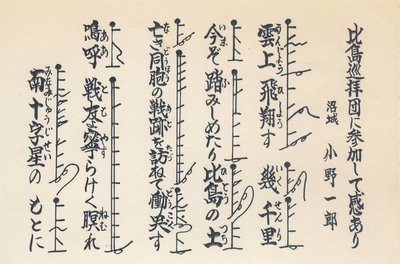 比島巡拝団に参加して感あり
沼城 小野一郎
雲上飛翔す 幾千里
今ぞ踏みしめたり比島の土
亡き同胞の戦跡を訪ねて慟哭す
嗚呼 戦友寧らけく瞑れ
南十字星の もとに